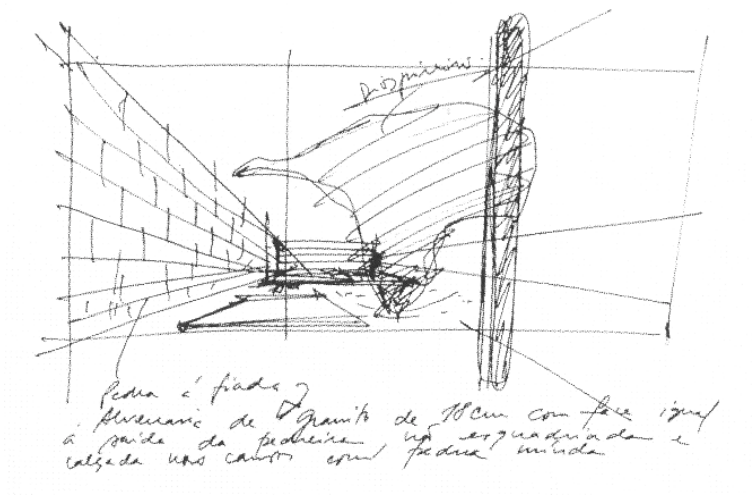 Pedra á fiada
Alvenaria de granito de 18cm com face igual
á saida da pedreira esquadriada e
calçada nos cantos com pedra miuda